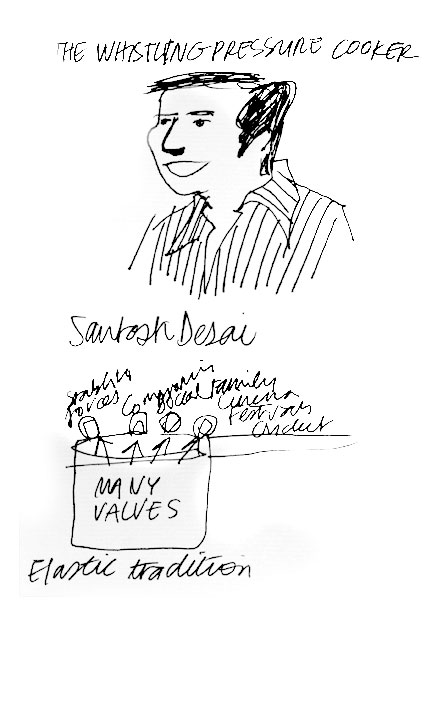 THE WHISTLING PRESSURE COOKER
Santosh Desai
forces
social Family
Cinema
Festivals
Cricket
MANY
VALVES
Elastic tradition